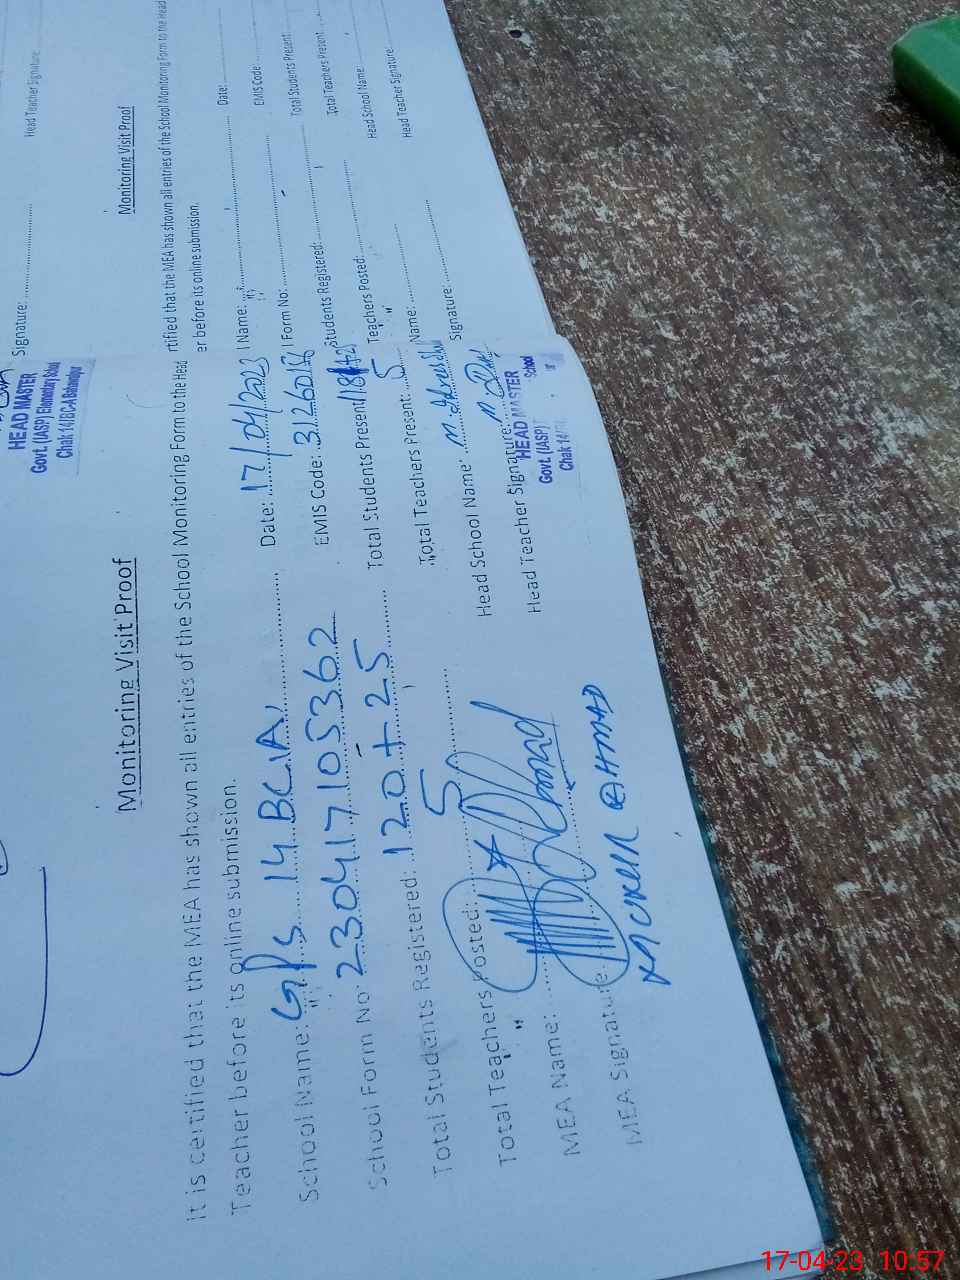 HEAD MASTER
Govt. (IASP) Elementary School
Chak 14/BC-A Bahawalpur
Monitoring Visit Proof
It is certified that the MEA has shown all entries of the School Monitoring Form to the Head
Teacher before its online submission.
School Name: GPS 14 BC/A Date: 17/04/2023
School Form No: 230417105362 EMIS Code:
Total Students Registered: 120+25 Total Students Present:
Total Teachers Posted: 5 Total Teachers Present: 5
MEA Name: Head School Name:
MEA Signature: Head Teacher Signature:
HEAD MASTER
Govt. (IASP) School
Chak 14/
Signature: Head Teacher Signature
Monitoring Visit Proof
rtified that the MEA has shown all entries of the School Monitoring Form to the Head
er before its online submission.
Name: Date:
Form No: EMIS Code:
Students Registered: Total Students Present:
Teachers Posted: Total Teachers Present:
Name: Head School Name
Signature: Head Teacher Signature:
17-04-23 10:57